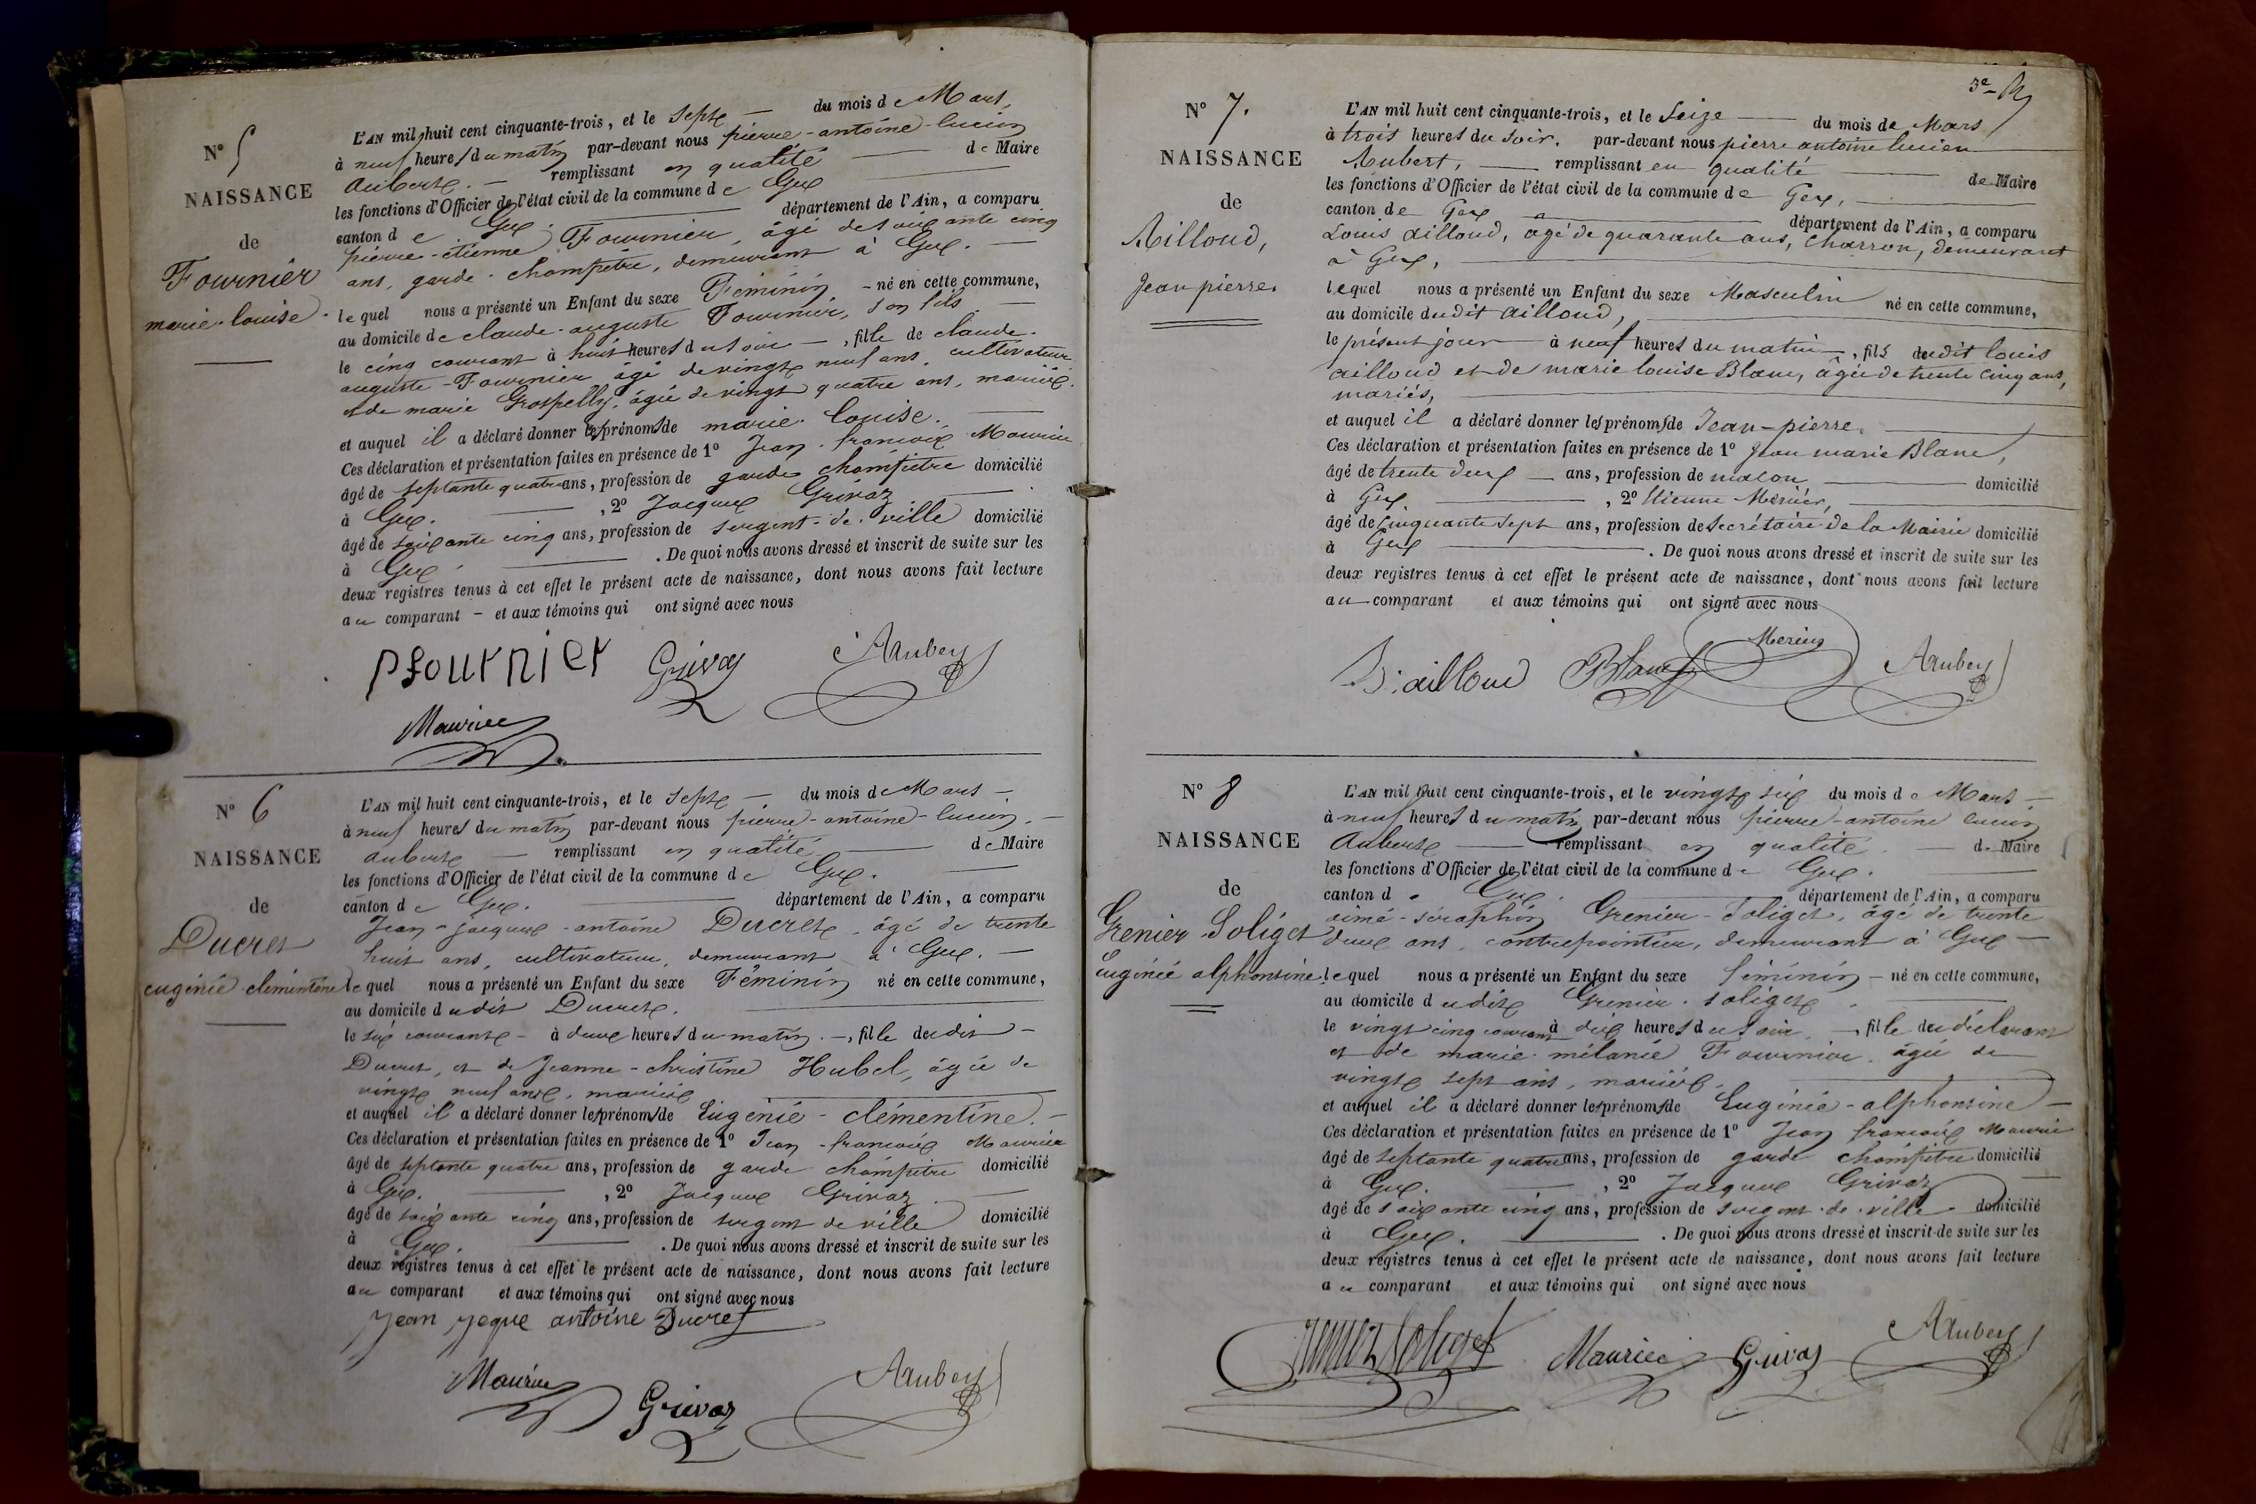 N° 5
NAISSANCE
de
Fournier
marie-louise.
L'AN mil huit cent cinquante-trois, et le Sept — du mois de Mars,
à neuf heures du matin par-devant nous pierre-antoine-lucien
Aubert. — remplissant en qualité — de Maire
les fonctions d'Officier de l'état civil de la commune de Gex —
canton de Gex. — département de l'Ain, a comparu
pierre-étienne Fournier, âgé de soixante cinq
ans, garde-champetre, demeurant à Gex. —
lequel nous a présenté un Enfant du sexe Féminin – né en cette commune,
au domicile de claude-auguste Fournier, son fils —
le cinq courant à huit heures du soir —, fille de claude-
auguste-Fournier âgé de vingt neuf ans, cultivateur
et de marie Grospelly, âgée de vingt quatre ans, mariés.
et auquel il a déclaré donner les prénoms de marie louise. —
Ces déclaration et présentation faites en présence de 1° Jean-francois Maurice
âgé de septante quatre ans, profession de garde champêtre domicilié
à Gex. — , 2° Jacques Grivaz —
âgé de soixante cinq ans, profession de sergent-de-ville domicilié
à Gex. — . De quoi nous avons dressé et inscrit de suite sur les
deux registres tenus à cet effet le présent acte de naissance, dont nous avons fait lecture
au comparant – et aux témoins qui ont signé avec nous
pfournier Grivaz Aubert
Maurice
N° 6
NAISSANCE
de
Ducret
eugénie clémentine
L'AN mil huit cent cinquante-trois, et le Sept — du mois de Mars —
à neuf heures du matin par-devant nous pierre-antoine-lucien. —
aubert — remplissant en qualité — de Maire
les fonctions d'Officier de l'état civil de la commune de Gex. —
canton de Gex. — département de l'Ain, a comparu
Jean-jacques-antoine Ducret, âgé de trente
huit ans, cultivateur, demeurant à Gex. —
lequel nous a présenté un Enfant du sexe Féminin né en cette commune,
au domicile dudit Ducret. —
le six courant – à deux heures du matin. —, fille dudit —
Ducret, et de Jeanne-christine Hubel, âgée de
vingt neuf ans, mariés —
et auquel il a déclaré donner les prénoms de Eugénie-clémentine. —
Ces déclaration et présentation faites en présence de 1° Jean-francois Maurice
âgé de septante quatre ans, profession de garde champêtre domicilié
à Gex. — , 2° Jacques Grivaz. —
âgé de soixante cinq ans, profession de sergent de ville domicilié
à Gex. — . De quoi nous avons dressé et inscrit de suite sur les
deux registres tenus à cet effet le présent acte de naissance, dont nous avons fait lecture
au comparant et aux témoins qui ont signé avec nous
jean jeque antoine Ducret
Maurice Grivaz Aubert
N° 7.
NAISSANCE
de
Ailloud,
Jean pierre.
L'AN mil huit cent cinquante-trois, et le Seize — du mois de Mars
à trois heures du soir. par-devant nous pierre antoine lucien
Aubert, — remplissant en qualité — de Maire
les fonctions d'Officier de l'état civil de la commune de Gex, —
canton de Gex — département de l'Ain, a comparu
Louis ailloud, âgé de quarante ans, charron, demeurant
à Gex, —
lequel nous a présenté un Enfant du sexe Masculin né en cette commune,
au domicile dudit ailloud, —
le présent jour — à neuf heures du matin —, fils dudit louis
ailloud et de marie louise Blanc, âgée de trente cinq ans,
mariés, —
et auquel il a déclaré donner les prénoms de Jean-pierre. —
Ces déclaration et présentation faites en présence de 1° Jean marie Blanc,
âgé de trente deux — ans, profession de maçon — domicilié
à Gex — , 2° Etienne Mérier, —
âgé de cinquante sept ans, profession de secrétaire de la Mairie domicilié
à Gex — . De quoi nous avons dressé et inscrit de suite sur les
deux registres tenus à cet effet le présent acte de naissance, dont nous avons fait lecture
au comparant et aux témoins qui ont signé avec nous
ailloud Blanc Aubert
N° 8
NAISSANCE
de
Grenier-Soliget
Eugénie alphonsine.
L'AN mil huit cent cinquante-trois, et le vingt six du mois de Mars —
à neuf heures du matin par-devant nous pierre-antoine lucien
Aubert — remplissant en qualité — de Maire
les fonctions d'Officier de l'état civil de la commune de Gex. —
canton de Gex. — département de l'Ain, a comparu
aimé-séraphin Grenier-Soliget, âgé de trente
deux ans, contrepointier, demeurant à Gex —
lequel nous a présenté un Enfant du sexe féminin – né en cette commune,
au domicile dudit Grenier-soliget. —
le vingt cinq courant à dix heures du soir, —, fille du déclarant
et de marie-mélanie Fournier, âgée de
vingt sept ans, mariés. —
et auquel il a déclaré donner les prénoms de Eugénie-alphonsine —
Ces déclaration et présentation faites en présence de 1° Jean francois Maurice
âgé de septante quatre ans, profession de garde champêtre domicilié
à Gex. — , 2° Jacques Grivaz —
âgé de soixante cinq ans, profession de sergent-de-ville domicilié
à Gex. — . De quoi nous avons dressé et inscrit de suite sur les
deux registres tenus à cet effet le présent acte de naissance, dont nous avons fait lecture
au comparant et aux témoins qui ont signé avec nous
Grenier Soliget Maurice Grivaz Aubert